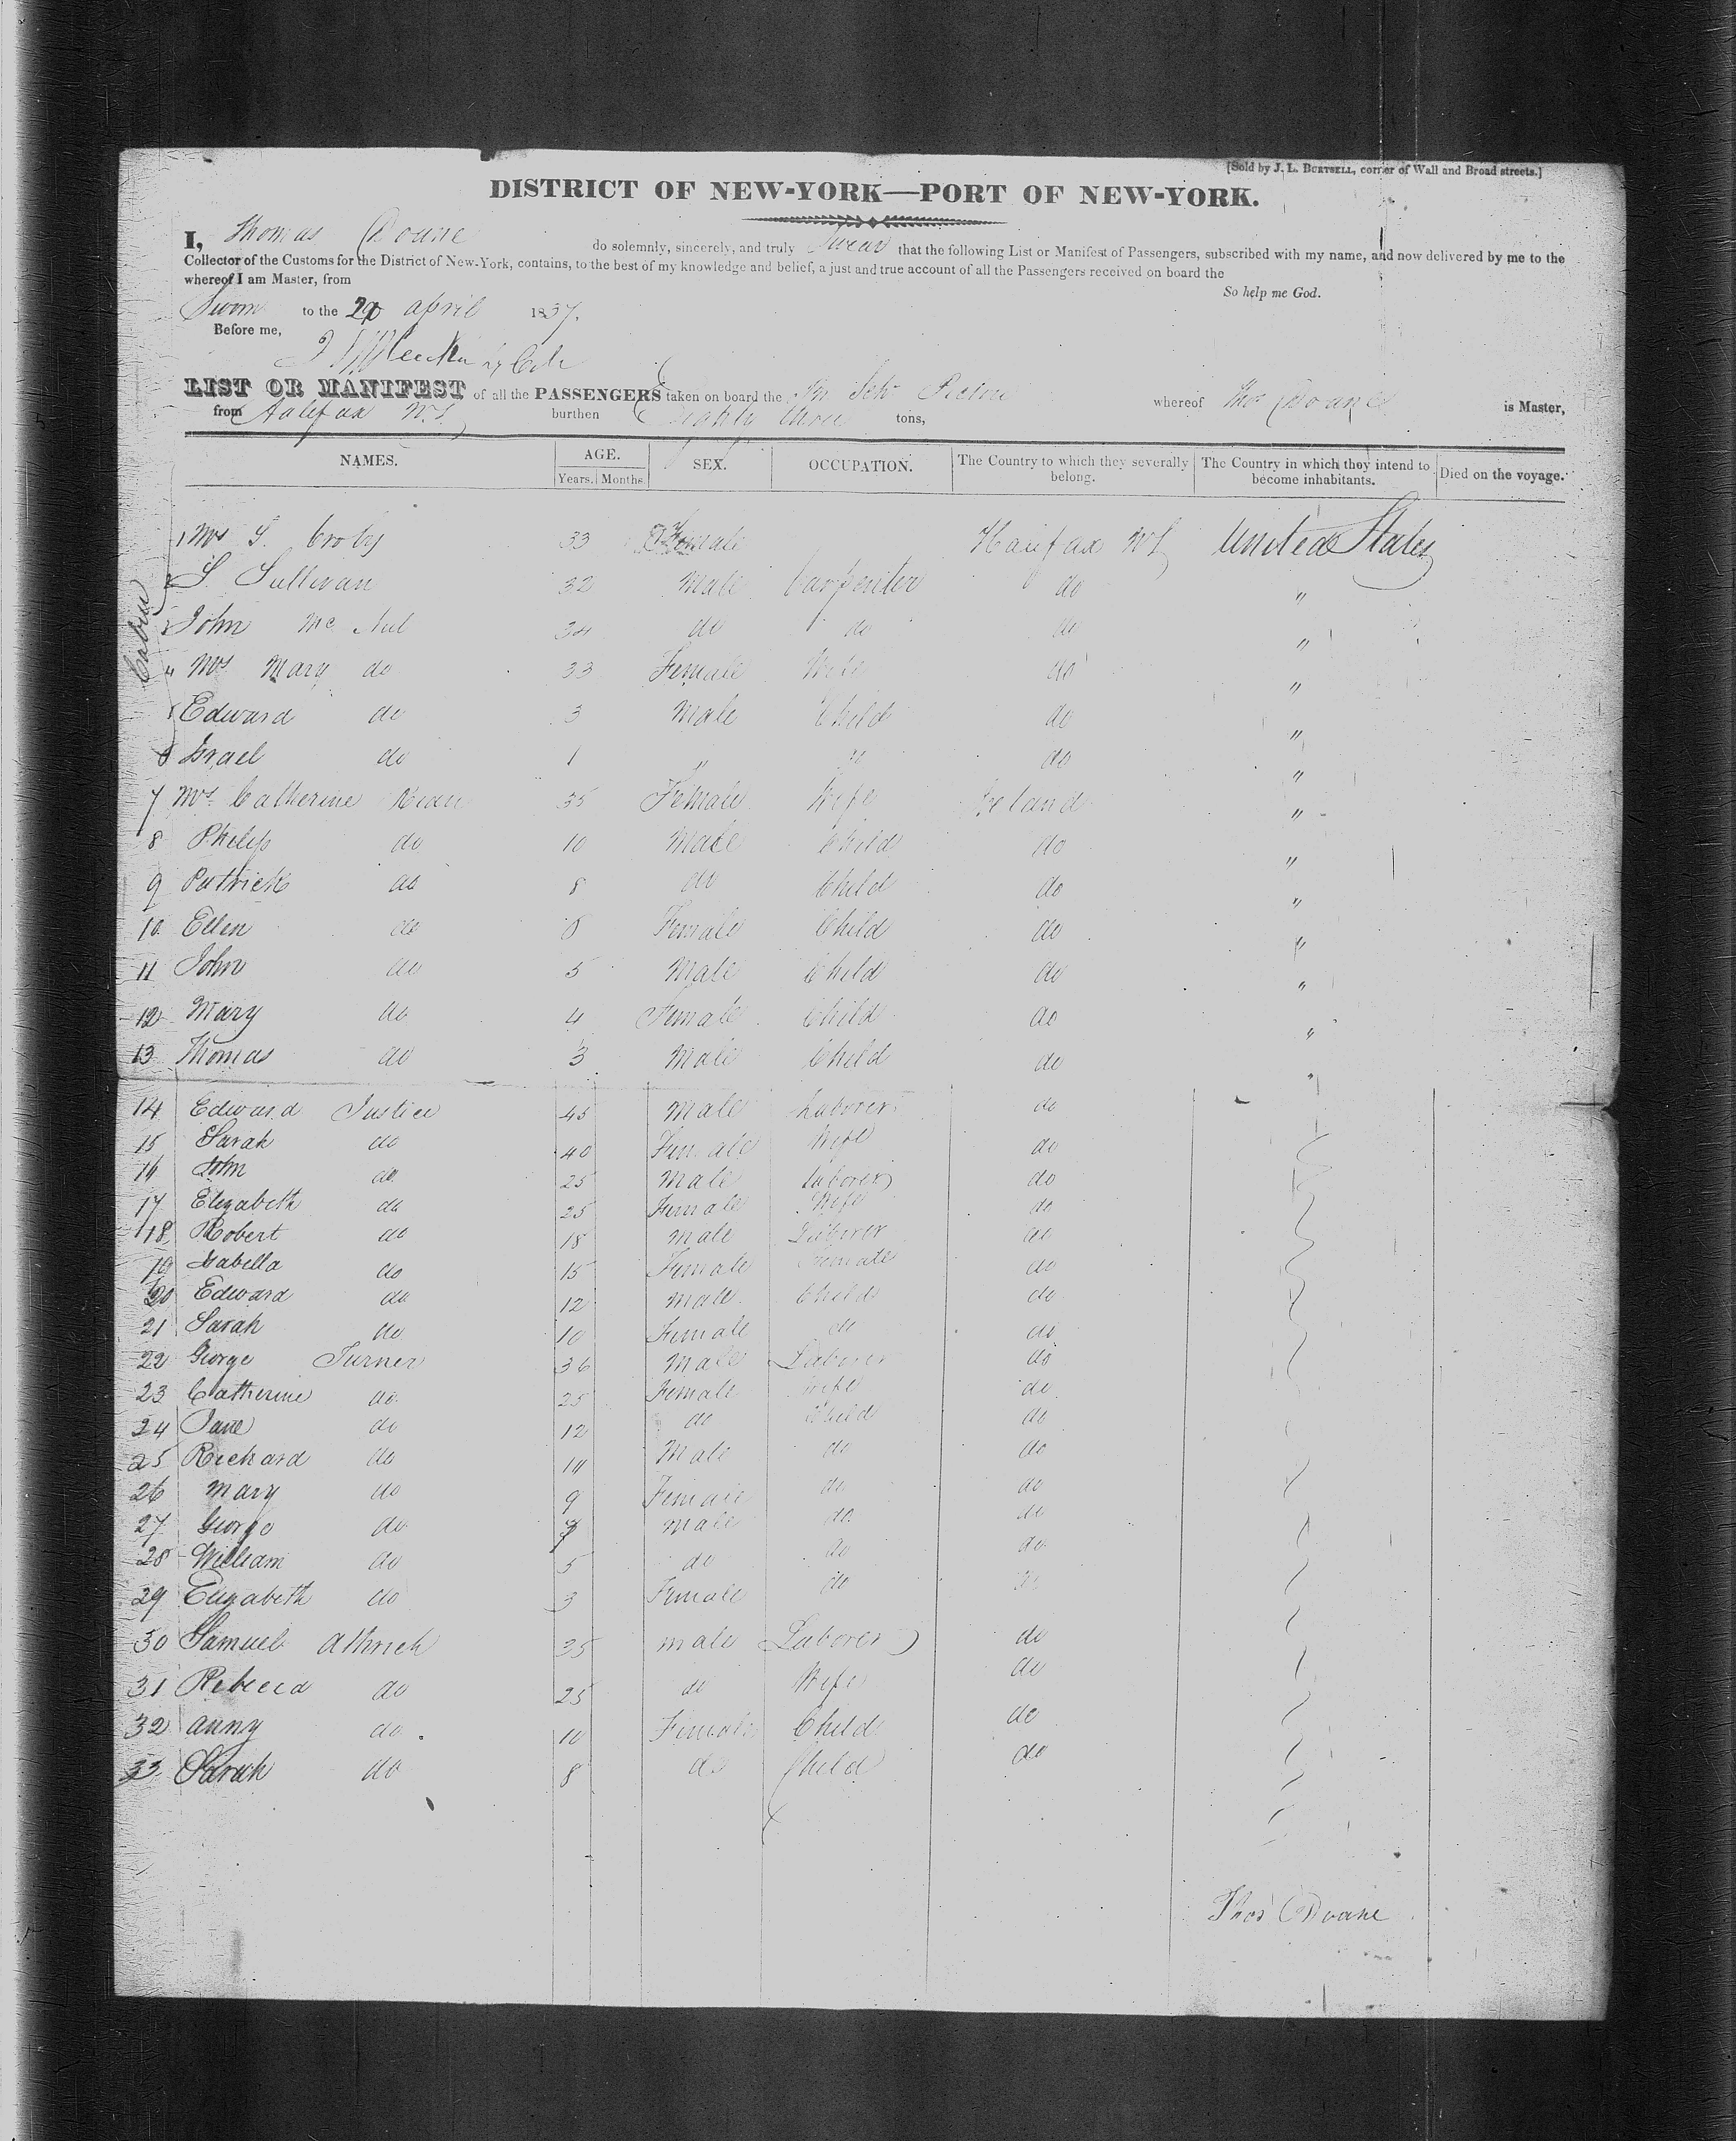 [Sold by J. L. BURTSELL, corner of Wall and Broad streets.]
DISTRICT OF NEW-YORK—PORT OF NEW-YORK.
I, Thomas Doane do solemnly, sincerely, and truly Swear that the following List or Manifest of Passengers, subscribed with my name, and now delivered by me to the
Collector of the Customs for the District of New-York, contains, to the best of my knowledge and belief, a just and true account of all the Passengers received on board the
whereof I am Master, from
So help me God.
Sworn to the 29 april 1837.
Before me,
LIST OR MANIFEST of all the PASSENGERS taken on board the Br Schr whereof Thos Doane is Master,
from Halifax N.S. burthen Eighty three tons,
NAMES. AGE. SEX. OCCUPATION. The Country to which they severally belong. The Country in which they intend to become inhabitants. Died on the voyage.
Years. Months.
Cabin
1 Mrs S. Croby 33 Female Halifax NS United States
2 S. Sullivan 32 Male Carpenter do "
3 John Mc 34 do do do "
4 Mrs Mary do 33 Female Wife do "
5 Edward do 3 Male Child do "
6 Israel do 1 " " do "
7 Mrs Catherine 35 Female Wife Ireland "
8 Philip do 10 Male Child do "
9 Patrick do 8 do Child do "
10 Ellen do 8 Female Child do "
11 John do 5 Male Child do "
12 Mary do 4 Female Child do "
13 Thomas do 3 Male Child do "
14 Edward Justice 45 Male Laborer do
15 Sarah do 40 Female Wife do
16 John do 25 Male laborer do
17 Elizabeth do 25 Female Wife do
18 Robert do 18 Male Laborer do
19 Isabella do 15 Female Female do
20 Edward do 12 Male Child do
21 Sarah do 10 Female do do
22 George Turner 36 Male Laborer do
23 Catherine do 25 Female Wife do
24 Jane do 12 do Child do
25 Richard do 11 Male do do
26 Mary do 9 Female do do
27 George do 7 male do do
28 William do 5 do do do
29 Elizabeth do 3 Female do do
30 Samuel Athrich 35 male Laborer do
31 Rebecca do 25 do Wife do
32 Anny do 10 Female Child do
33 Sarah do 8 do Child do
Thos Doane